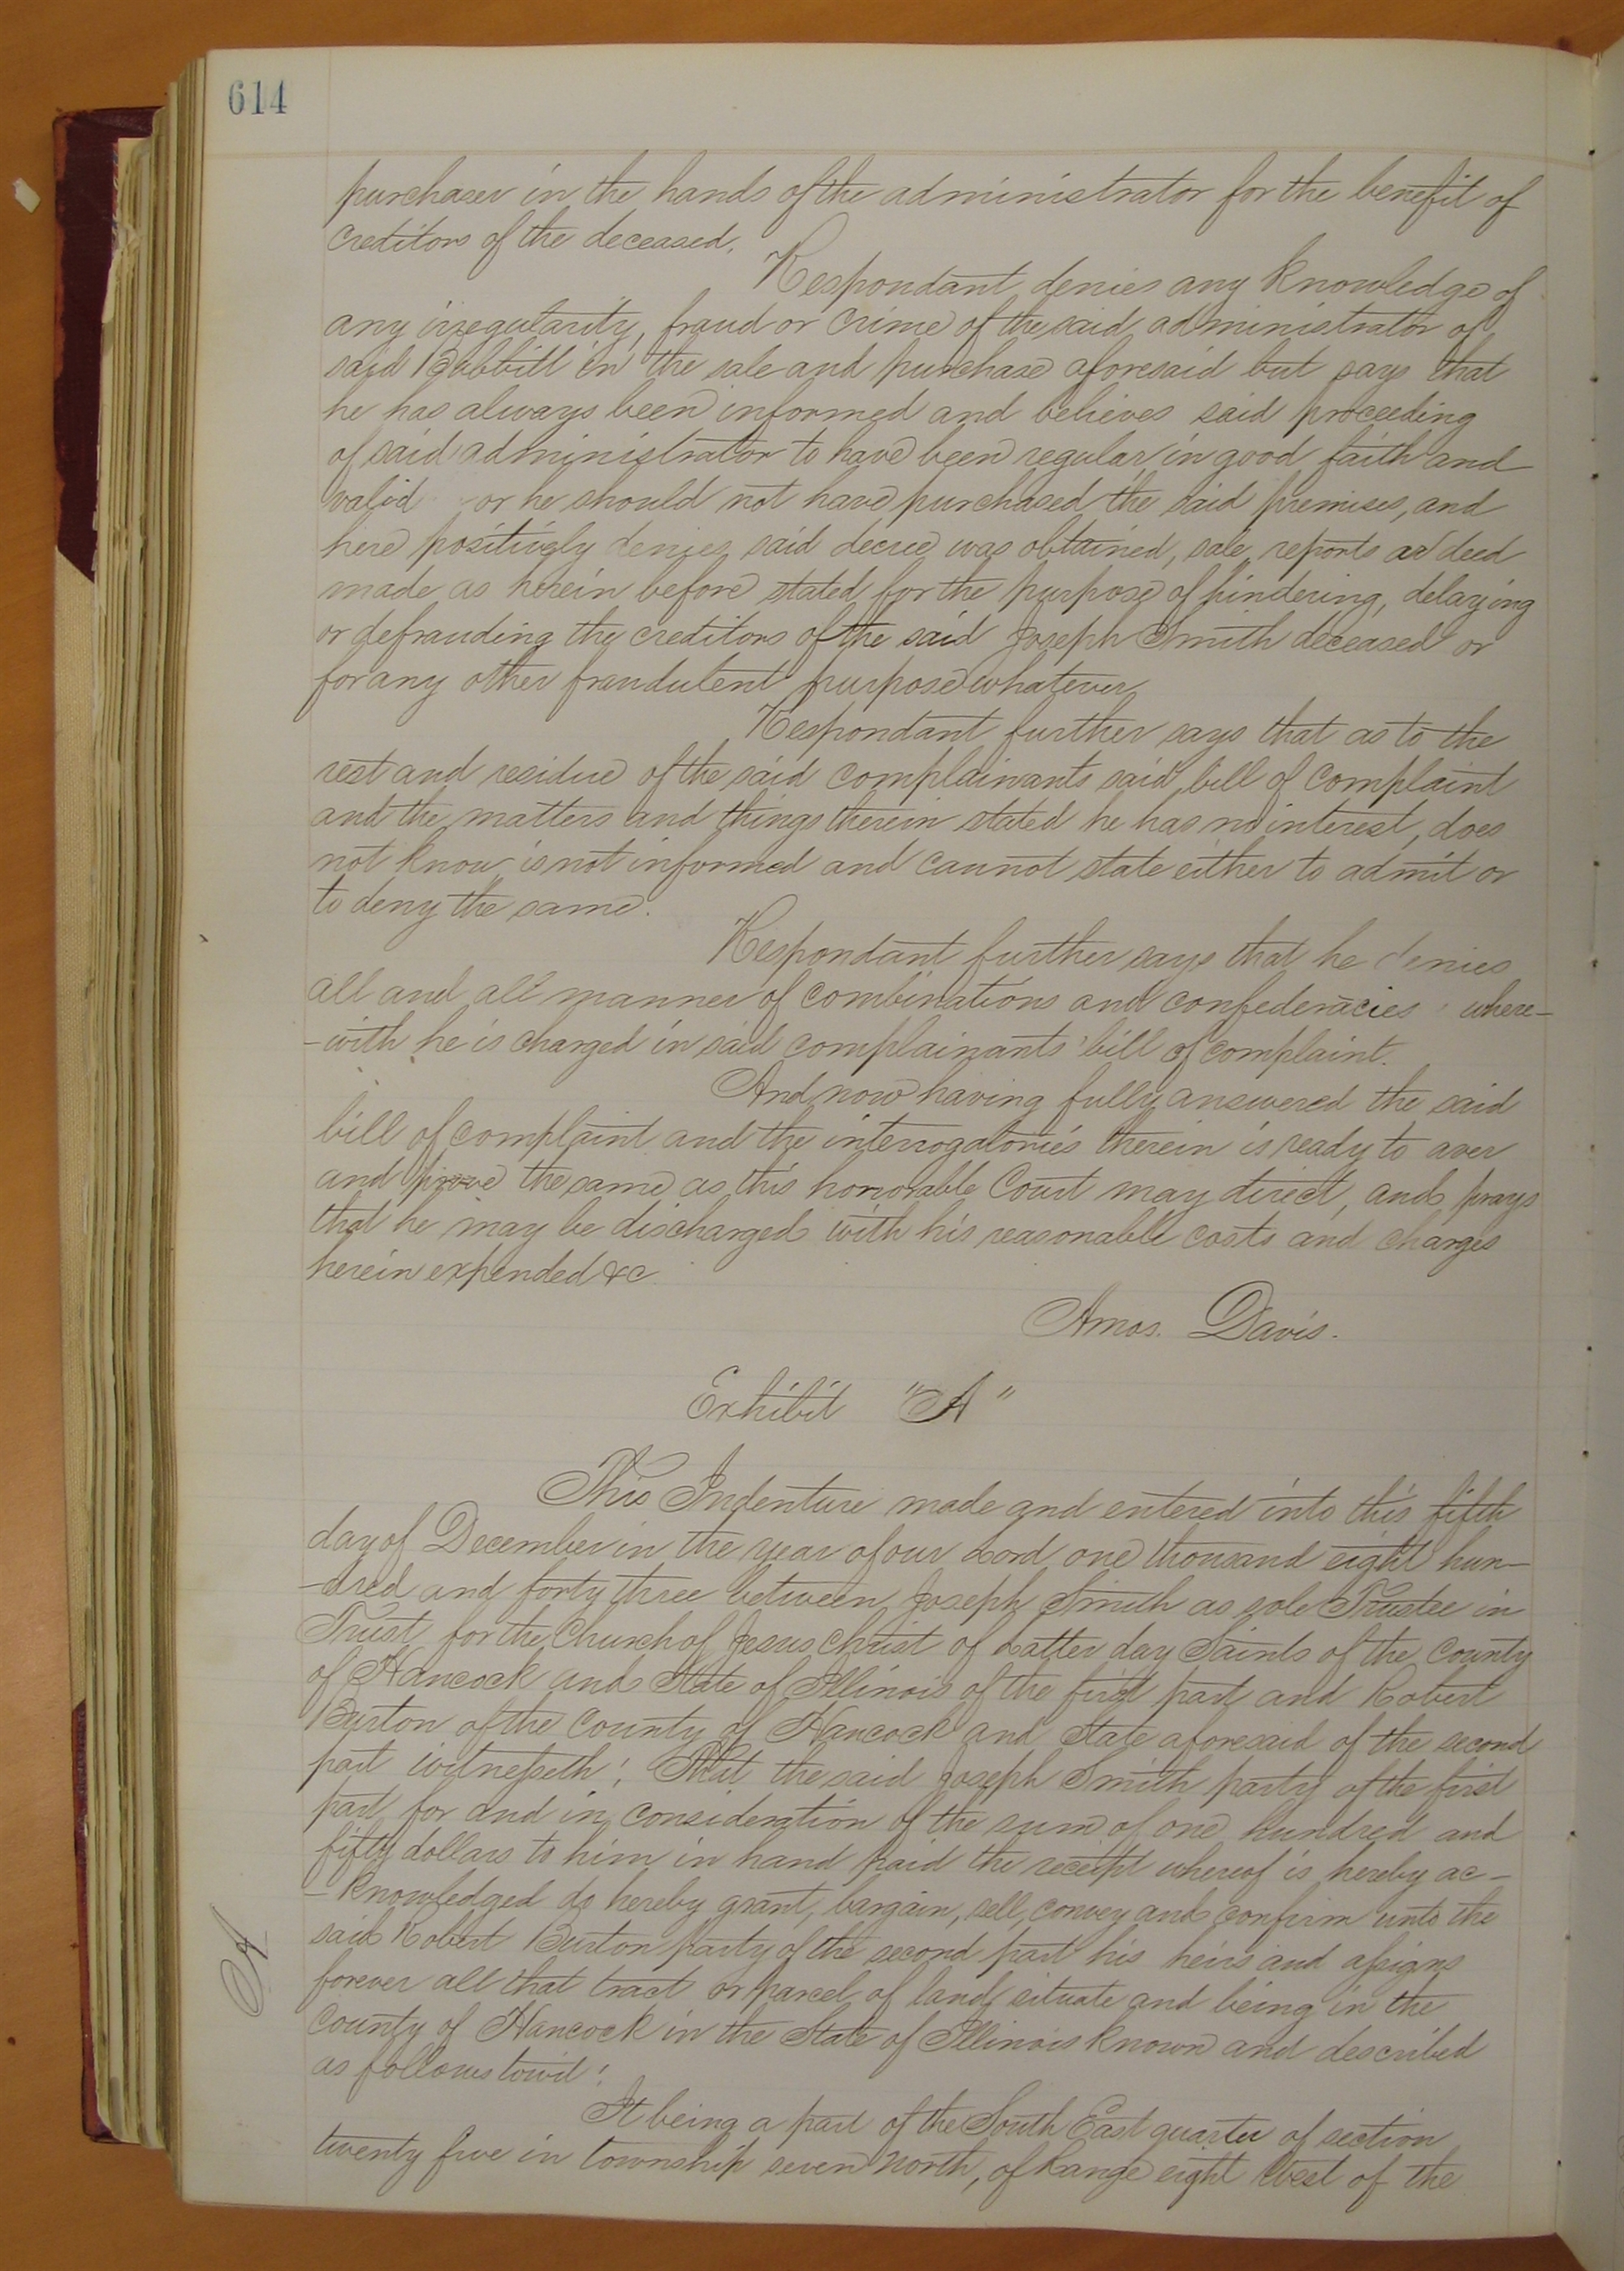 614
purchaser in the hands of the administrator for the benefit of
creditors of the deceased.
Respondant denies any knowledge of
any irregularity, fraud or crime of the said administrator of
said Babbitt in the sale and purchase aforesaid but says that
he has always been informed and believes said proceeding
of said administrator to have been regular in good faith and
valid or he should not have purchased the said premises, and
here positively denies said decree was obtained, sale, reports or deed
made as herein before stated for the purpose of hindering, delaying
or defrauding the creditors of the said Joseph Smith deceased or
for any other fraudulent purpose whatever
Respondant further says that as to the
rest and residue of the said complainants said bill of complaint
and the matters and things therein stated he has no interest, does
not know is not informed and cannot state either to admit or
to deny the same.
Respondant further says that he denies
all and all manner of combinations and confederacies where-
-with he is charged in said complainants' bill of complaint.
And now having fully answered the said
bill of complaint and the interrogatories therein is ready to aver
and prove the same as this honorable Court may direct, and prays
that he may be discharged with his reasonable costs and charges
herein expended &c
Amos. Davis.
Exhibit "A"
This Indenture made and entered into this fifth
day of December in the year of our Lord one thousand eight hun-
-dred and forty three between Joseph Smith as sole Trustee in
Trust for the Church of Jesus Christ of Latter day Saints of the County
of Hancock and State of Illinois of the first part and Robert
Burton of the County of Hancock and State aforesaid of the second
part witnesseth: That the said Joseph Smith party of the first
part for and in consideration of the sum of one hundred and
fifty dollars to him in hand paid the receipt whereof is hereby ac-
-knowledged do hereby grant, bargain, sell, convey and confirm unto the
said Robert Burton party of the second part his heirs and assigns
forever all that tract or parcel of land situate and being in the
County of Hancock in the State of Illinois known and described
as follows towit:
A
It being a part of the South East quarter of section
twenty five in township seven North, of Range eight West of the